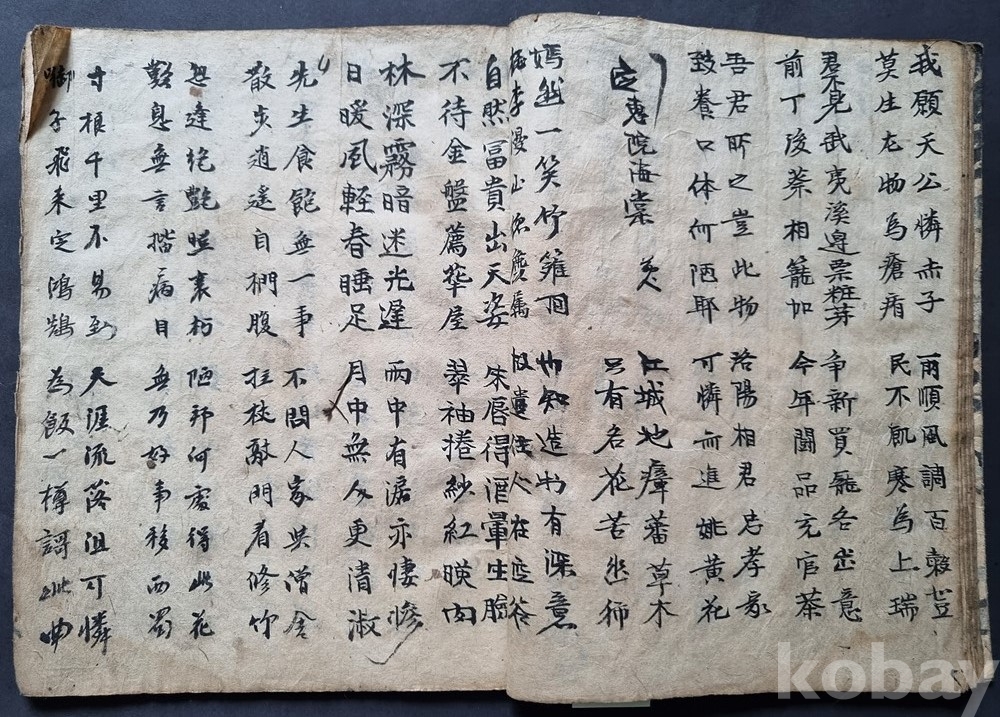 我願天公憐赤子
莫生尤物為瘡痏
雨順風調百穀登
民不飢寒為上瑞
君不見武夷溪邊粟粒芽
前丁後蔡相籠加
争新買寵各出意
今年鬪品充官茶
吾君所乏豈此物
致養口体何陋耶
洛陽相君忠孝家
可憐亦進姚黃花
定惠院海棠
江城地瘴蕃草木
只有名花苦幽獨
嫣然一笑竹籬間
桃李漫山總麤俗
也知造物有深意
故遣佳人在空谷
自然富貴出天姿
不待金盤薦華屋
朱唇得酒暈生臉
翠袖捲紗紅暎肉
林深霧暗迷光遲
日暖風輕春睡足
雨中有淚亦悽慘
月中無人更清淑
先生食飽無一事
散步逍遙自捫腹
不問人家與僧舍
拄杖敲門看修竹
忽逢絶艶照衰朽
歎息無言揩病目
陋邦何處得此花
無乃好事移西蜀
寸根千里不易到
啣子飛来定鴻鵠
天涯流落俱可憐
為飲一樽謌此曲
kobay